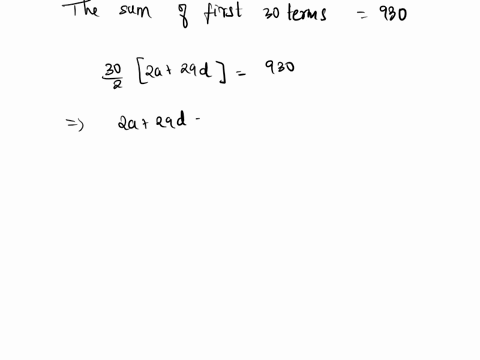 The sum of first 30 terms = 930
30/2 [2a + 29d] = 930
⇒ 2a + 29d -